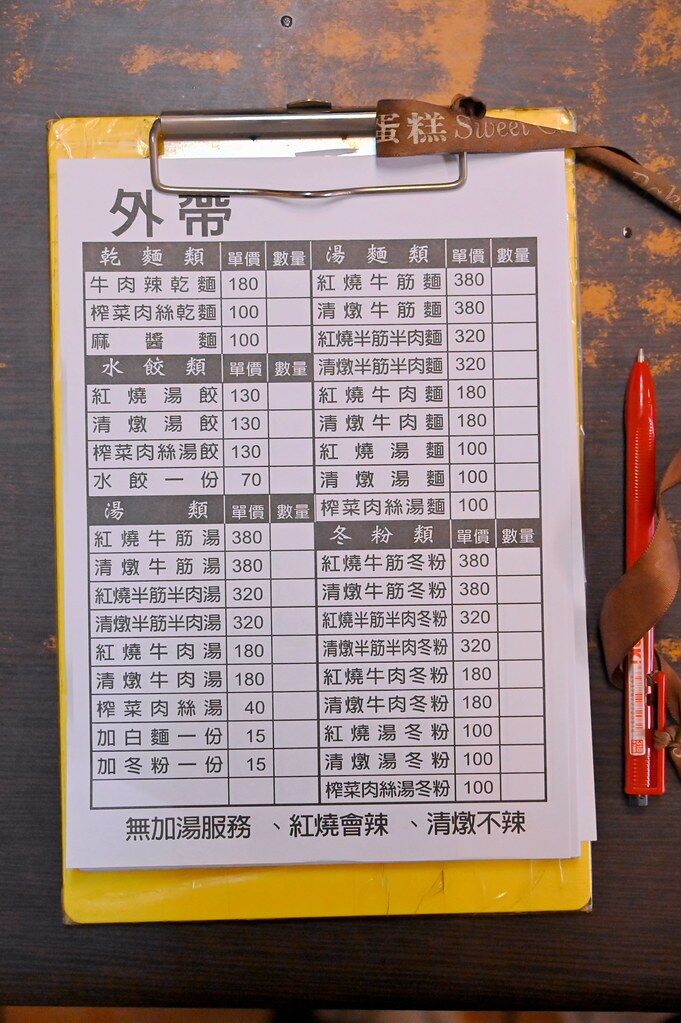 蛋糕 Sweet
外帶
乾麵類 單價 數量
牛肉辣乾麵 180
榨菜肉絲乾麵 100
麻醬麵 100
水餃類 單價 數量
紅燒湯餃 130
清燉湯餃 130
榨菜肉絲湯餃 130
水餃一份 70
湯類 單價 數量
紅燒牛筋湯 380
清燉牛筋湯 380
紅燒半筋半肉湯 320
清燉半筋半肉湯 320
紅燒牛肉湯 180
清燉牛肉湯 180
榨菜肉絲湯 40
加白麵一份 15
加冬粉一份 15
湯麵類 單價 數量
紅燒牛筋麵 380
清燉牛筋麵 380
紅燒半筋半肉麵 320
清燉半筋半肉麵 320
紅燒牛肉麵 180
清燉牛肉麵 180
紅燒湯麵 100
清燉湯麵 100
榨菜肉絲湯麵 100
冬粉類 單價 數量
紅燒牛筋冬粉 380
清燉牛筋冬粉 380
紅燒半筋半肉冬粉 320
清燉半筋半肉冬粉 320
紅燒牛肉冬粉 180
清燉牛肉冬粉 180
紅燒湯冬粉 100
清燉湯冬粉 100
榨菜肉絲湯冬粉 100
無加湯服務、紅燒會辣、清燉不辣